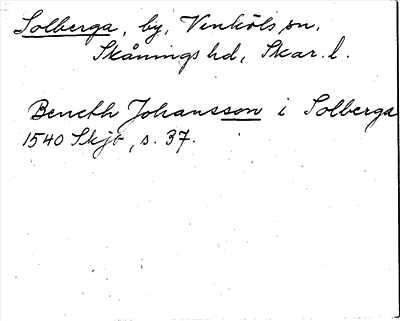 Solberga, by, Venköls sn.
Skånings hd, Skar. l.
Beneth Johansson i Solberga
1540 Skjb, s. 37.